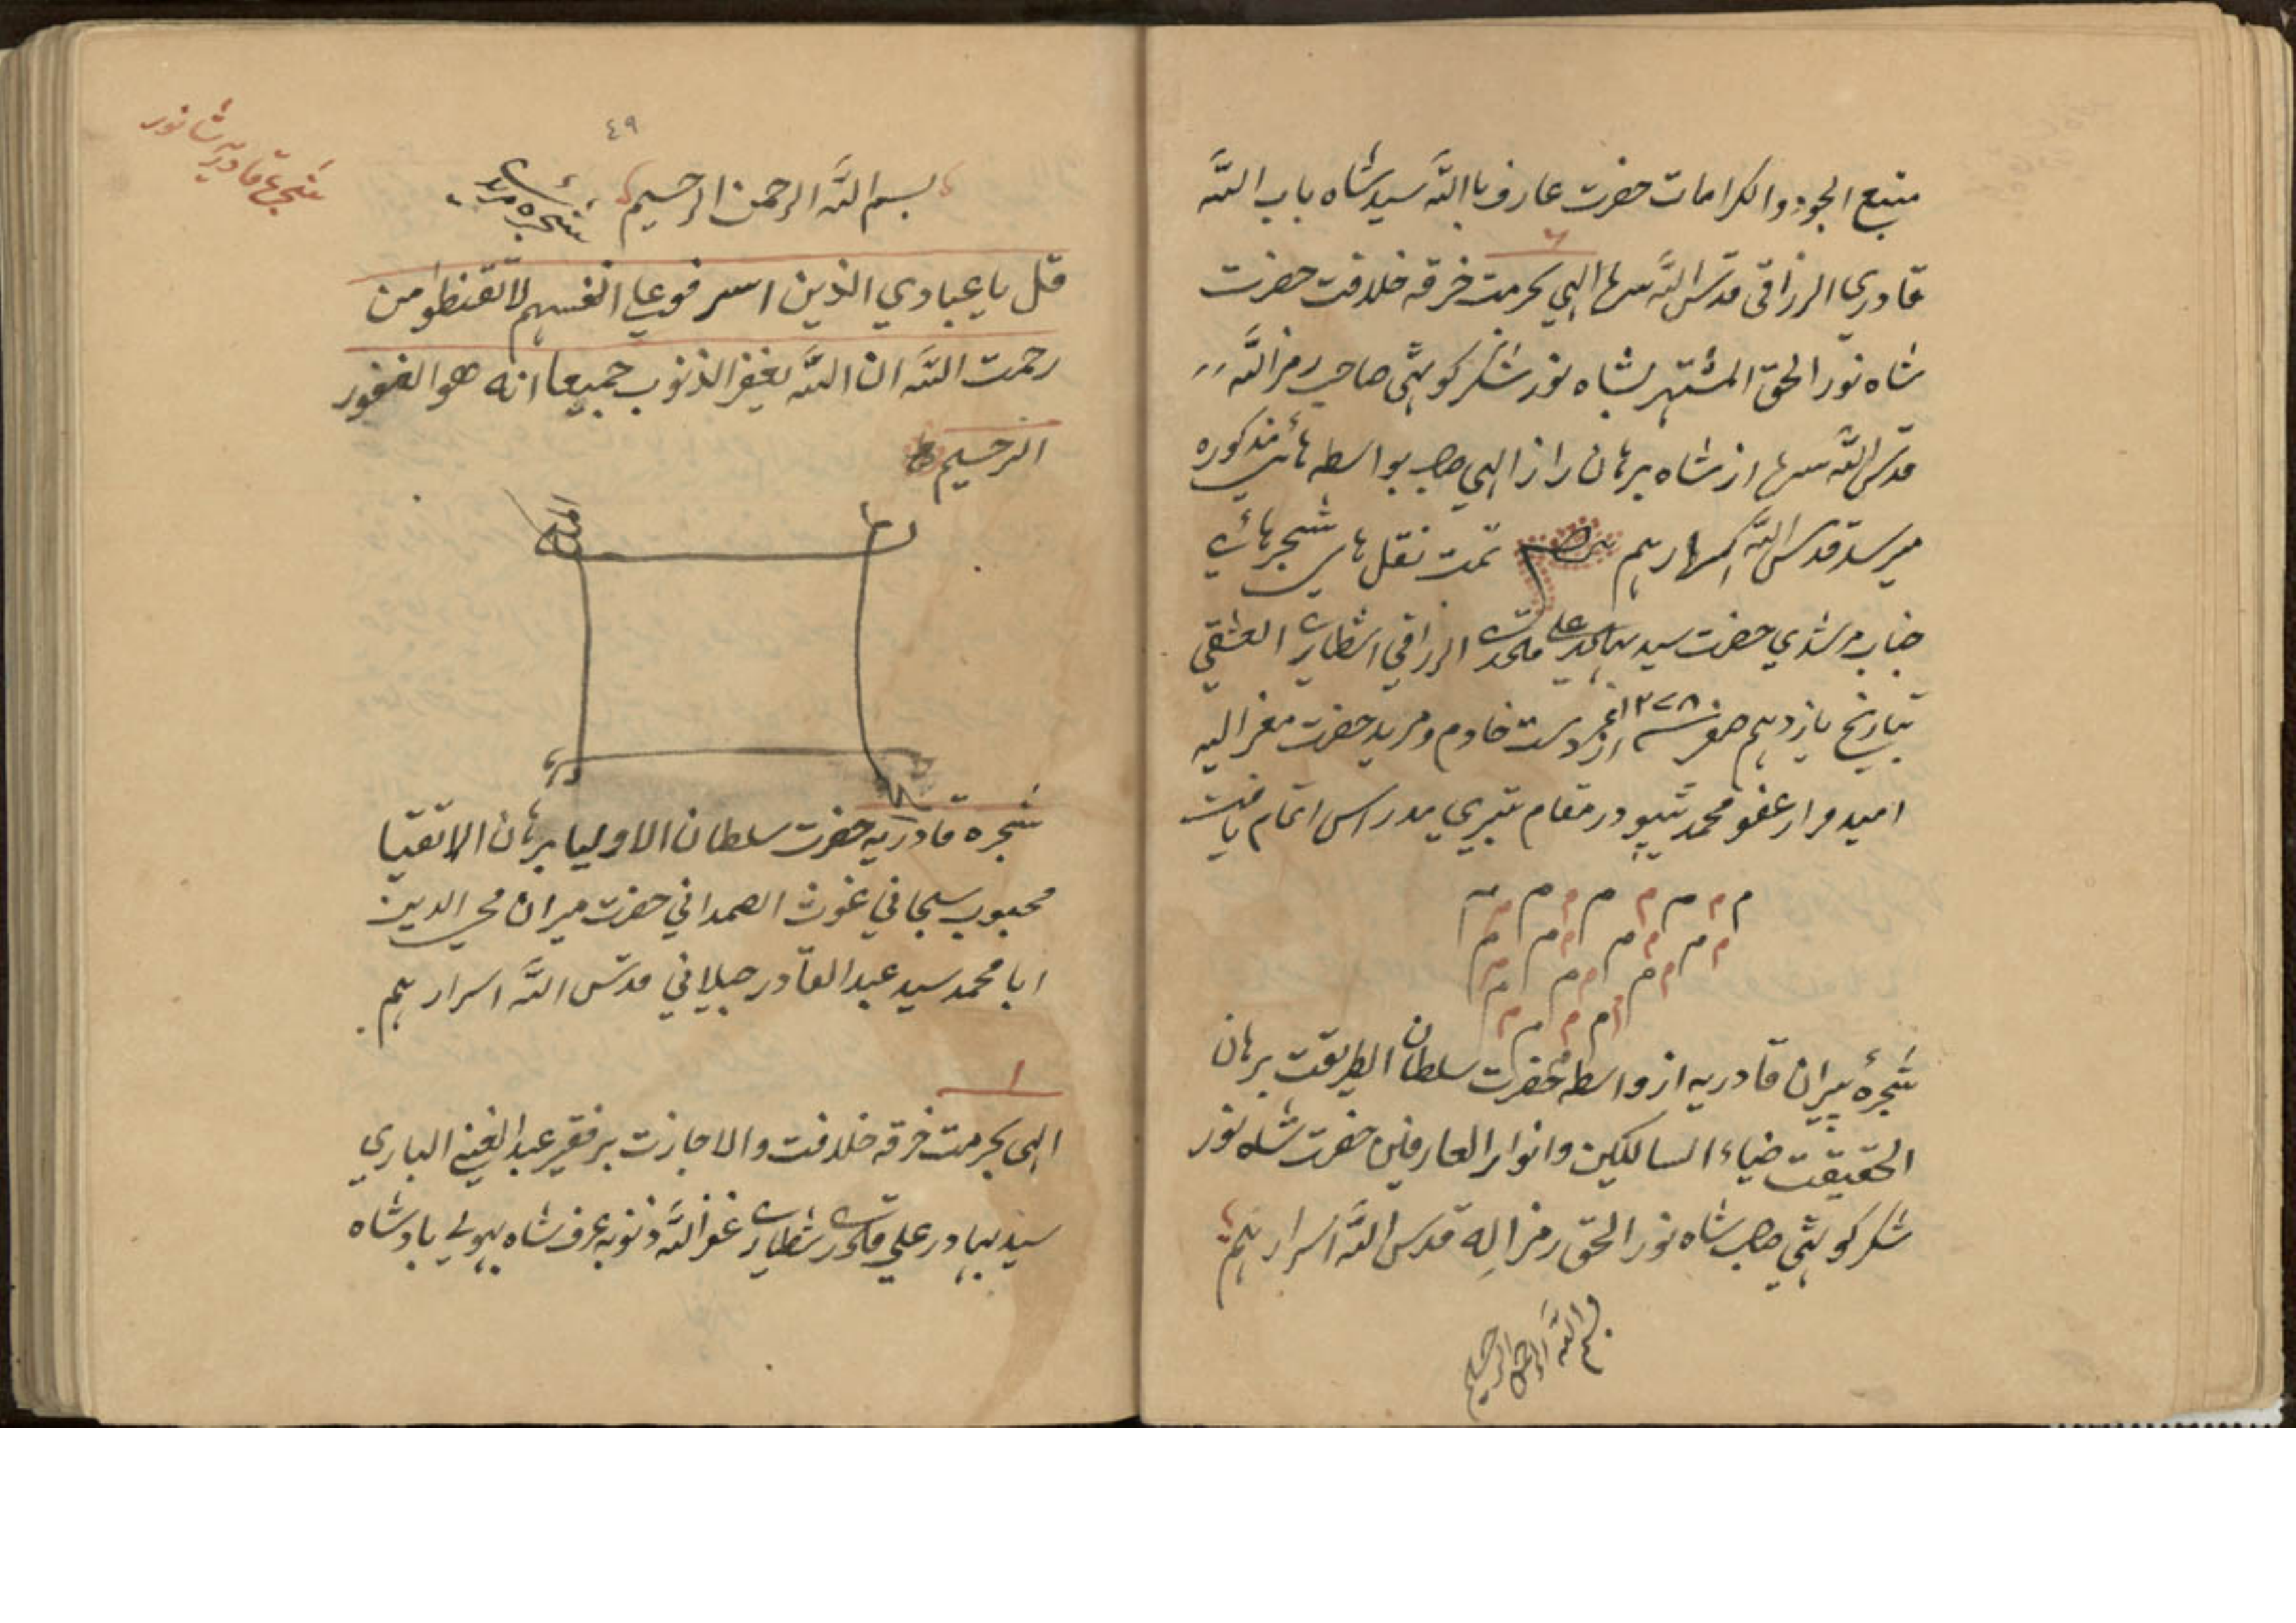 منبع الجود والکرامات حضرت عارف باالله سید شاه باب الله
قادری الرزاقی قدس الله سرها الهی بحرمت خرقه خلافت حضرت
شاه نور الحق المشتهر بشاه نور شکر کوہٹی صاحب رمز الله
قدس الله سرها از شاه برهان راز الهی صاحب بواسطه هائ مذکوره
میرسد قدس الله اسرارهم تمت نقل های شجرهائے
جناب مرشدی حضرت سید علی قادری الرزاقی الشطاری العشقی
بتاریخ یازدهم صفر سنه ۱۲۷۸ از دست خادم و مرید حضرت معز الیه
امیدوار عفو محمد ٹیپو در مقام مدراس اتمام یافت
شجرهٔ پیران قادریه از واسطه حضرت سلطان الطریقت برهان
الحقیقت ضیاء السالکین وانوار العارفین حضرت شاه نور
شکر کوہٹی صاحب شاه نور الحق رمز اله قدس الله اسرارهم
بسم الله الرحمن الرحیم
شجرة قادریه شا نور
٤٩
بسم الله الرحمن الرحیم
شجره
قل یا عبادي الذین اسرفو علی انفسهم لا تقنطو من
رحمت الله ان الله یغفر الذنوب جمیعا انه هو الغفور
الرحیم
شجره قادریه حضرت سلطان الاولیا برهان الاتقیا
محبوب سبحاني غوث الصمداني حضرت میران محي الدین
ابا محمد سید عبد القادر جیلاني قدس الله اسرارهم
۱
الهی بحرمت خرقه خلافت والاجازت بر فقیر عبد الغنی الباري
سید بهادر علي قادری شطاری غفر الله ذنوبه عرف شاه بھولے بادشاه